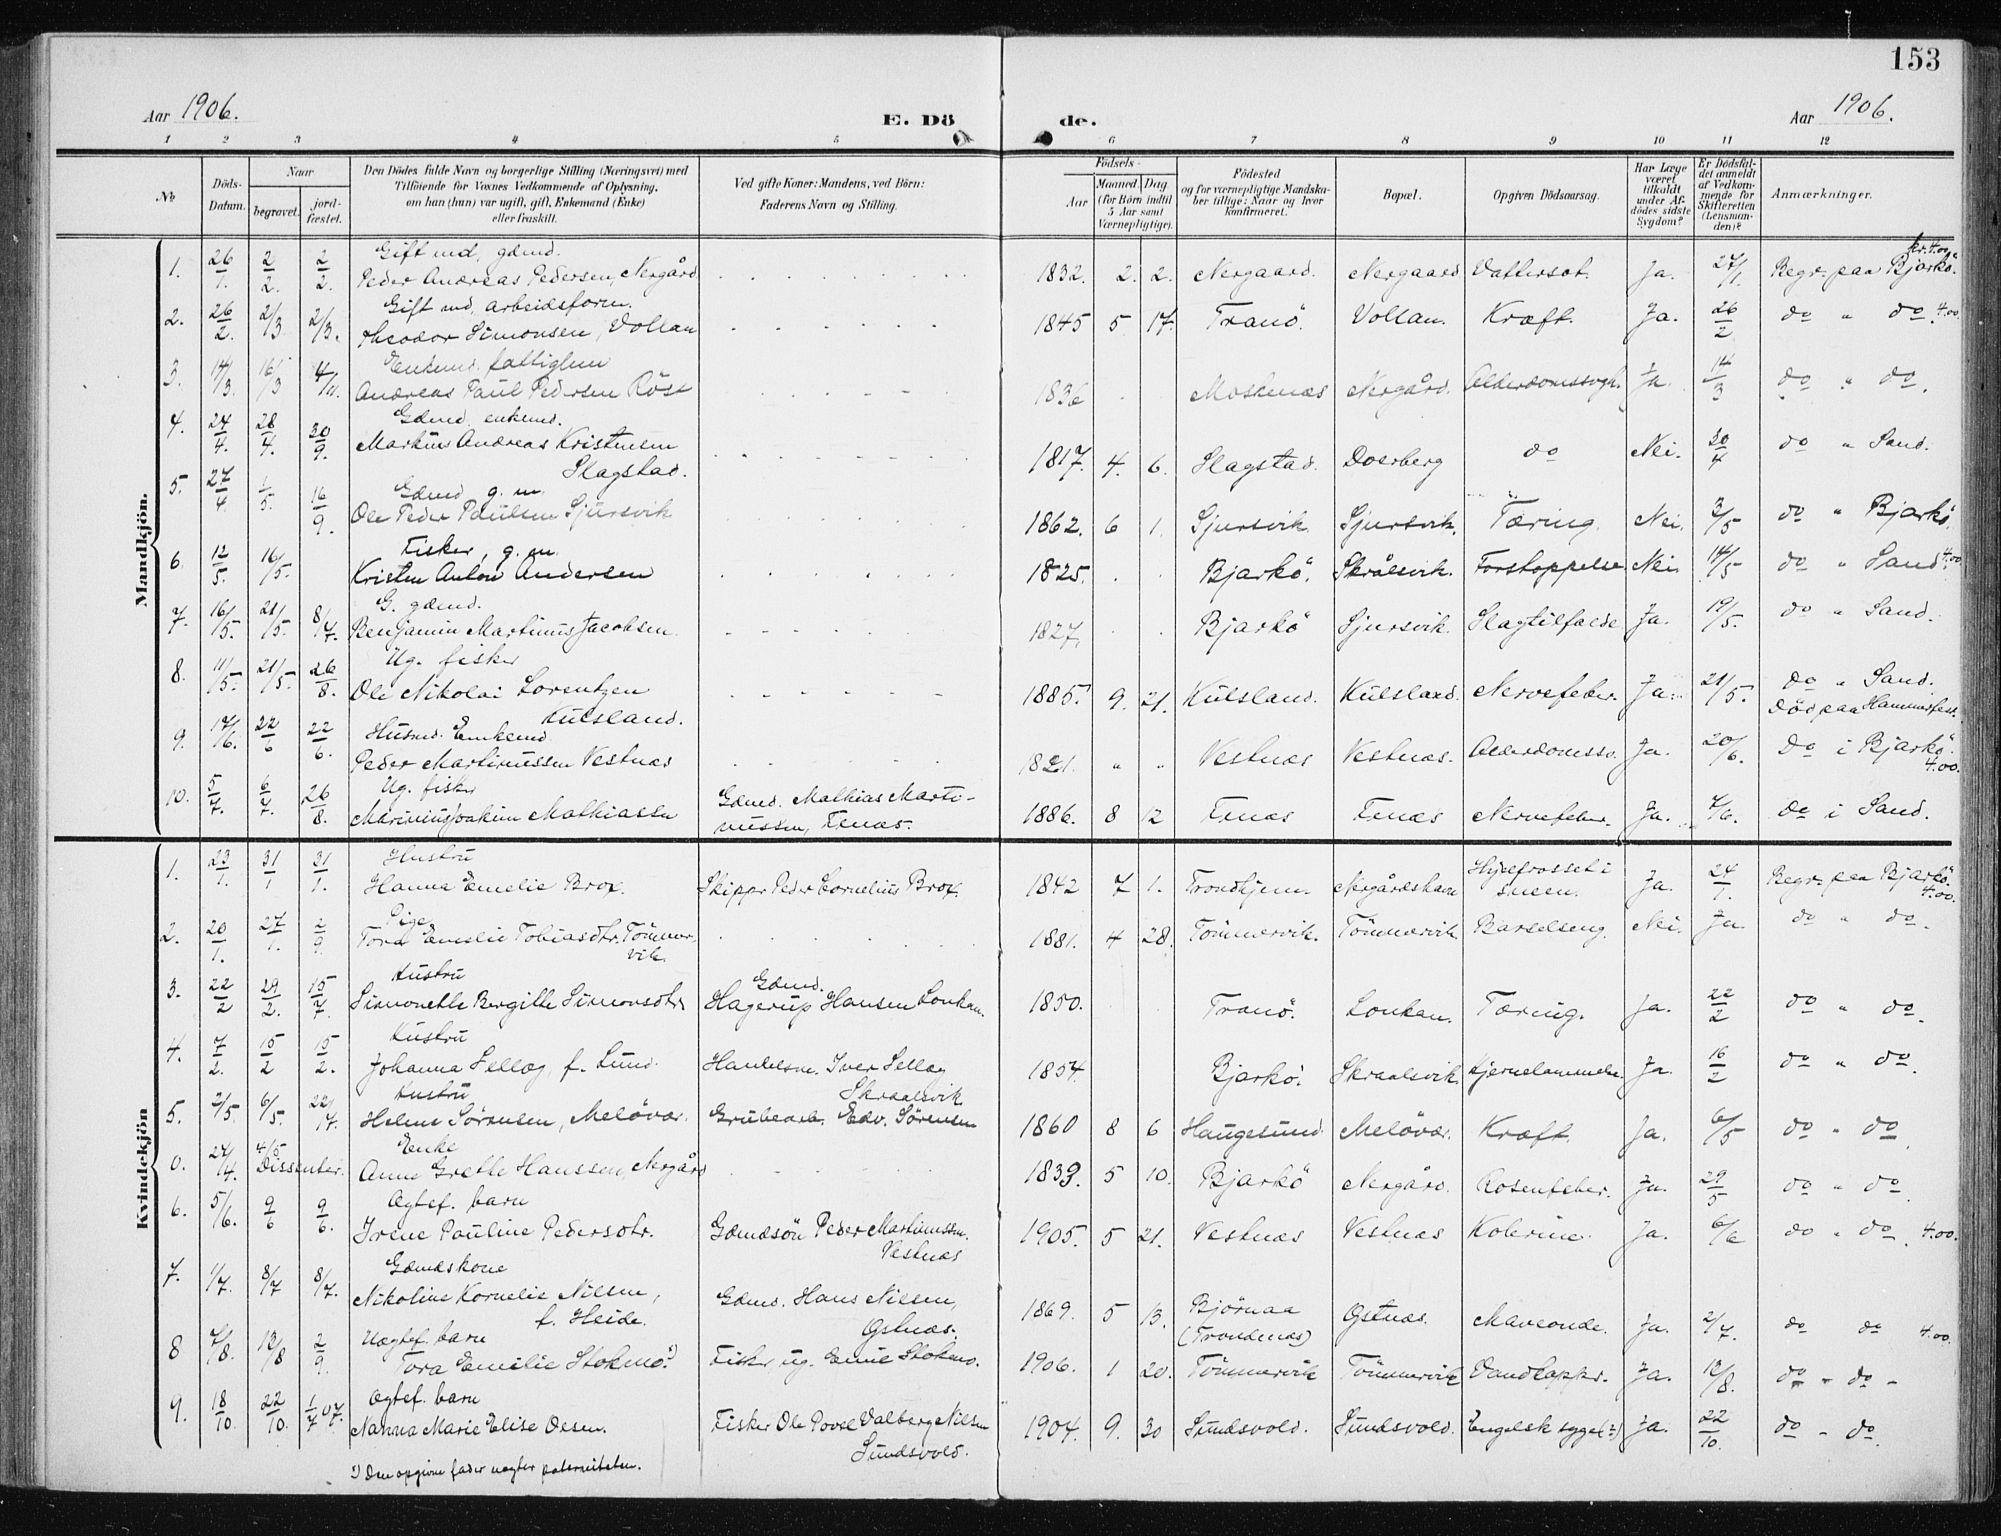 153
Aar 1906.
E. Dö de.
Aar 1906.
1 2 3 4 5 6 7 8 9 10 11 12
No.
Döds-Datum.
Naar
begravet.
jord-fæstet.
Den Dödes fulde Navn og borgerlige Stilling (Næringsvei) med
Tilföiende for Voxnes Vedkommende af Oplysning,
om han (hun) var ugift, gift, Enkemand (Enke)
eller fraskilt.
Ved gifte Koner: Mandens, ved Börn:
Faderens Navn og Stilling.
Födsels-
Aar
Maaned. Dag
(for Börn indtil
5 Aar samt
Værnepligtige).
Födested
og for værnepligtige Mandska-
ber tillige: Naar og hvor
konfirmeret.
Bopæl.
Opgiven Dödsaarsag.
Har Læge
været
tilkaldt
under Af-
dödes sidste
Sygdom?
Er Dödsfal-
det anmeldt
af Vedkom-
mende for
Skifteretten
(Lensman-
den)?
Anmærkninger.
Mandkjön.
1. 26/1. 2/2. 2/2. Gift md, gdmd.
Peder Andreas Pedersen, Nergård 1832. 2. 2. Nergaard. Nergaard Vattersot. Ja. 27/1. Begr. paa Bjarkö. kr. 4.00
2. 26/2. 2/3 2/3. Gift md, arbeidsform.
Theodor Simonsen, Vollan 1845 5 17. Tranö. Vollan. Kræft. Ja. 26/2 do " do. 4.00
3. 14/3. 16/3 4/11. Enkemd. fattiglem
Andreas Paul Pedersen Röst 1836 Moskenæs Nergård. Alderdomssvgh. Ja. 14/3 do " do.
4. 24/4. 28/4. 30/9. Gdmd. enkemd.
Markus Andreas Kristensen
Slagstad. 1817. 4. 6. Slagstad. Doerberg do Nei. 30/4 do " Sand.
5. 27/4. 1/5. 16/9. Gdmd g. m.
Ole Peder Paulsen Sjursvik 1862. 6 1. Sjursvik. Sjursvik. Tæring. Nei. 3/5 do " Bjarkö
6. 12/5. 16/5. Fisker, g. m.
Kristen Anton Andersen 1825. Bjarkö. Skrålsvik. Forstoppelse Nei. 14/5 do " Sand. 4.00
7. 16/5. 21/5. 8/7. G. gdmd.
Benjamin Martinus Jacobsen 1827. Bjarkö Sjursvik. Slagtilfælde Ja. 19/5. do " Sand.
8. 11/5. 21/5. 26/8. Ug. fisker
Ole Nikolai Lorentzen
Kulsland. 1885. 9. 21. Kulsland. Kulsland. Nervefeber. Ja. 21/5. do " Sand.
Död paa Hammerfest.
9. 17/6. 22/6 22/6. Husmd. Enkemd.
Peder Martinussen Vestnæs 1821. " " Vestnæs Vestnæs. Alderdomssv. Ja. 20/6. do i Bjarkö. 4.00.
10. 5/7. 6/7. 26/8. Ug. fisker
Marinius Joakim Mathiassen Gdmd. Mathias Marti-
nussen, Fenæs. 1886. 8 12 Fenæs Fenæs Nervefeber. Ja. 7/6. do i Sand.
Kvindekjön
1. 23/1. 31/1 31/1. Hustru
Hanna Emelie Brox. Skippr Peder Cornelius Brox. 1842 7 1. Trondhjem. Nergårdshavn Ihjelfrosset i
sneen. Ja. 24/1. Begr. paa Bjarkö. 4.00.
2. 20/1. 27/1. 2/9. Pige
Tora Emelie Tobiasdtr. Tömmer-
vik. 1881. 4 28. Tömmervik. Tömmervik Barselseng. Nei. Ja. do " do.
3. 22/2 29/2. 15/7. Hustru
Simonette Bergitte Simonsdtr. Gdmd.
Hagerup Hansen Lonkan. 1850. Tranö. Lonkan. Tæring. Ja. 22/2 do " do.
4. 7/2. 15/2 15/2. Hustru
Johanna Selleg, f. Lund. Handelsm. Iver Selleg
Skraalsvik 1854. Bjarkö. Skraalsvik. Hjernelammelse. Ja. 16/2 do " do.
5. 2/5. 6/5. 22/7. Hustru
Helene Sörensen, Melövær. Grubearb. Edv. Sörensen 1860 8 6 Haugesund Melövær. Kræft. Ja. 6/5 do " do
0. 24/4. 4/5 Dissenter. Enke
Anne Grethe Hanssen, Nergård 1839. 5 10. Bjarkö Nergård. Rosenfeber. Ja. 29/5 do " do.
6. 5/6. 9/6 9/6. Ægtef. barn
Irene Pauline Pedersdtr. Gdmdsön Peder Martinussen.
Vestnæs 1905. 5 21. Vestnæs Vestnæs Kolerine. Ja. 6/6 do " do. 4.00.
7. 1/7. 8/7 8/7. Gdmdskone
Nikoline Kornelie Nilsen,
f. Heide. Gdmd. Hans Nilsen,
Östnæs. 1869. 5 13. Björnaa
(Trondenæs) Östnæs. Maveonde. Ja. 2/7. do do 4.00.
8 7/8. 12/8 2/9. Uægtef. barn
Tora Emilie Stokmo. 1) Fisker ug. Emil Stokmo. 1906. 1 20. Tömmervik Tömmervik Vandkoppr. Ja. 12/8. do " do -
9. 18/10. 22/10. 1/7 07. Ægtef. barn
Nanna Marie Elise Olsen. Fisker Ole Povel Valberg Nilsen
Sundsvold. 1904. 9. 30 Sundsvold. Sundsvold. Engelsk syge(?) Ja. 22/10. do - do.
1) Den opgivne fader negter paterniteten.